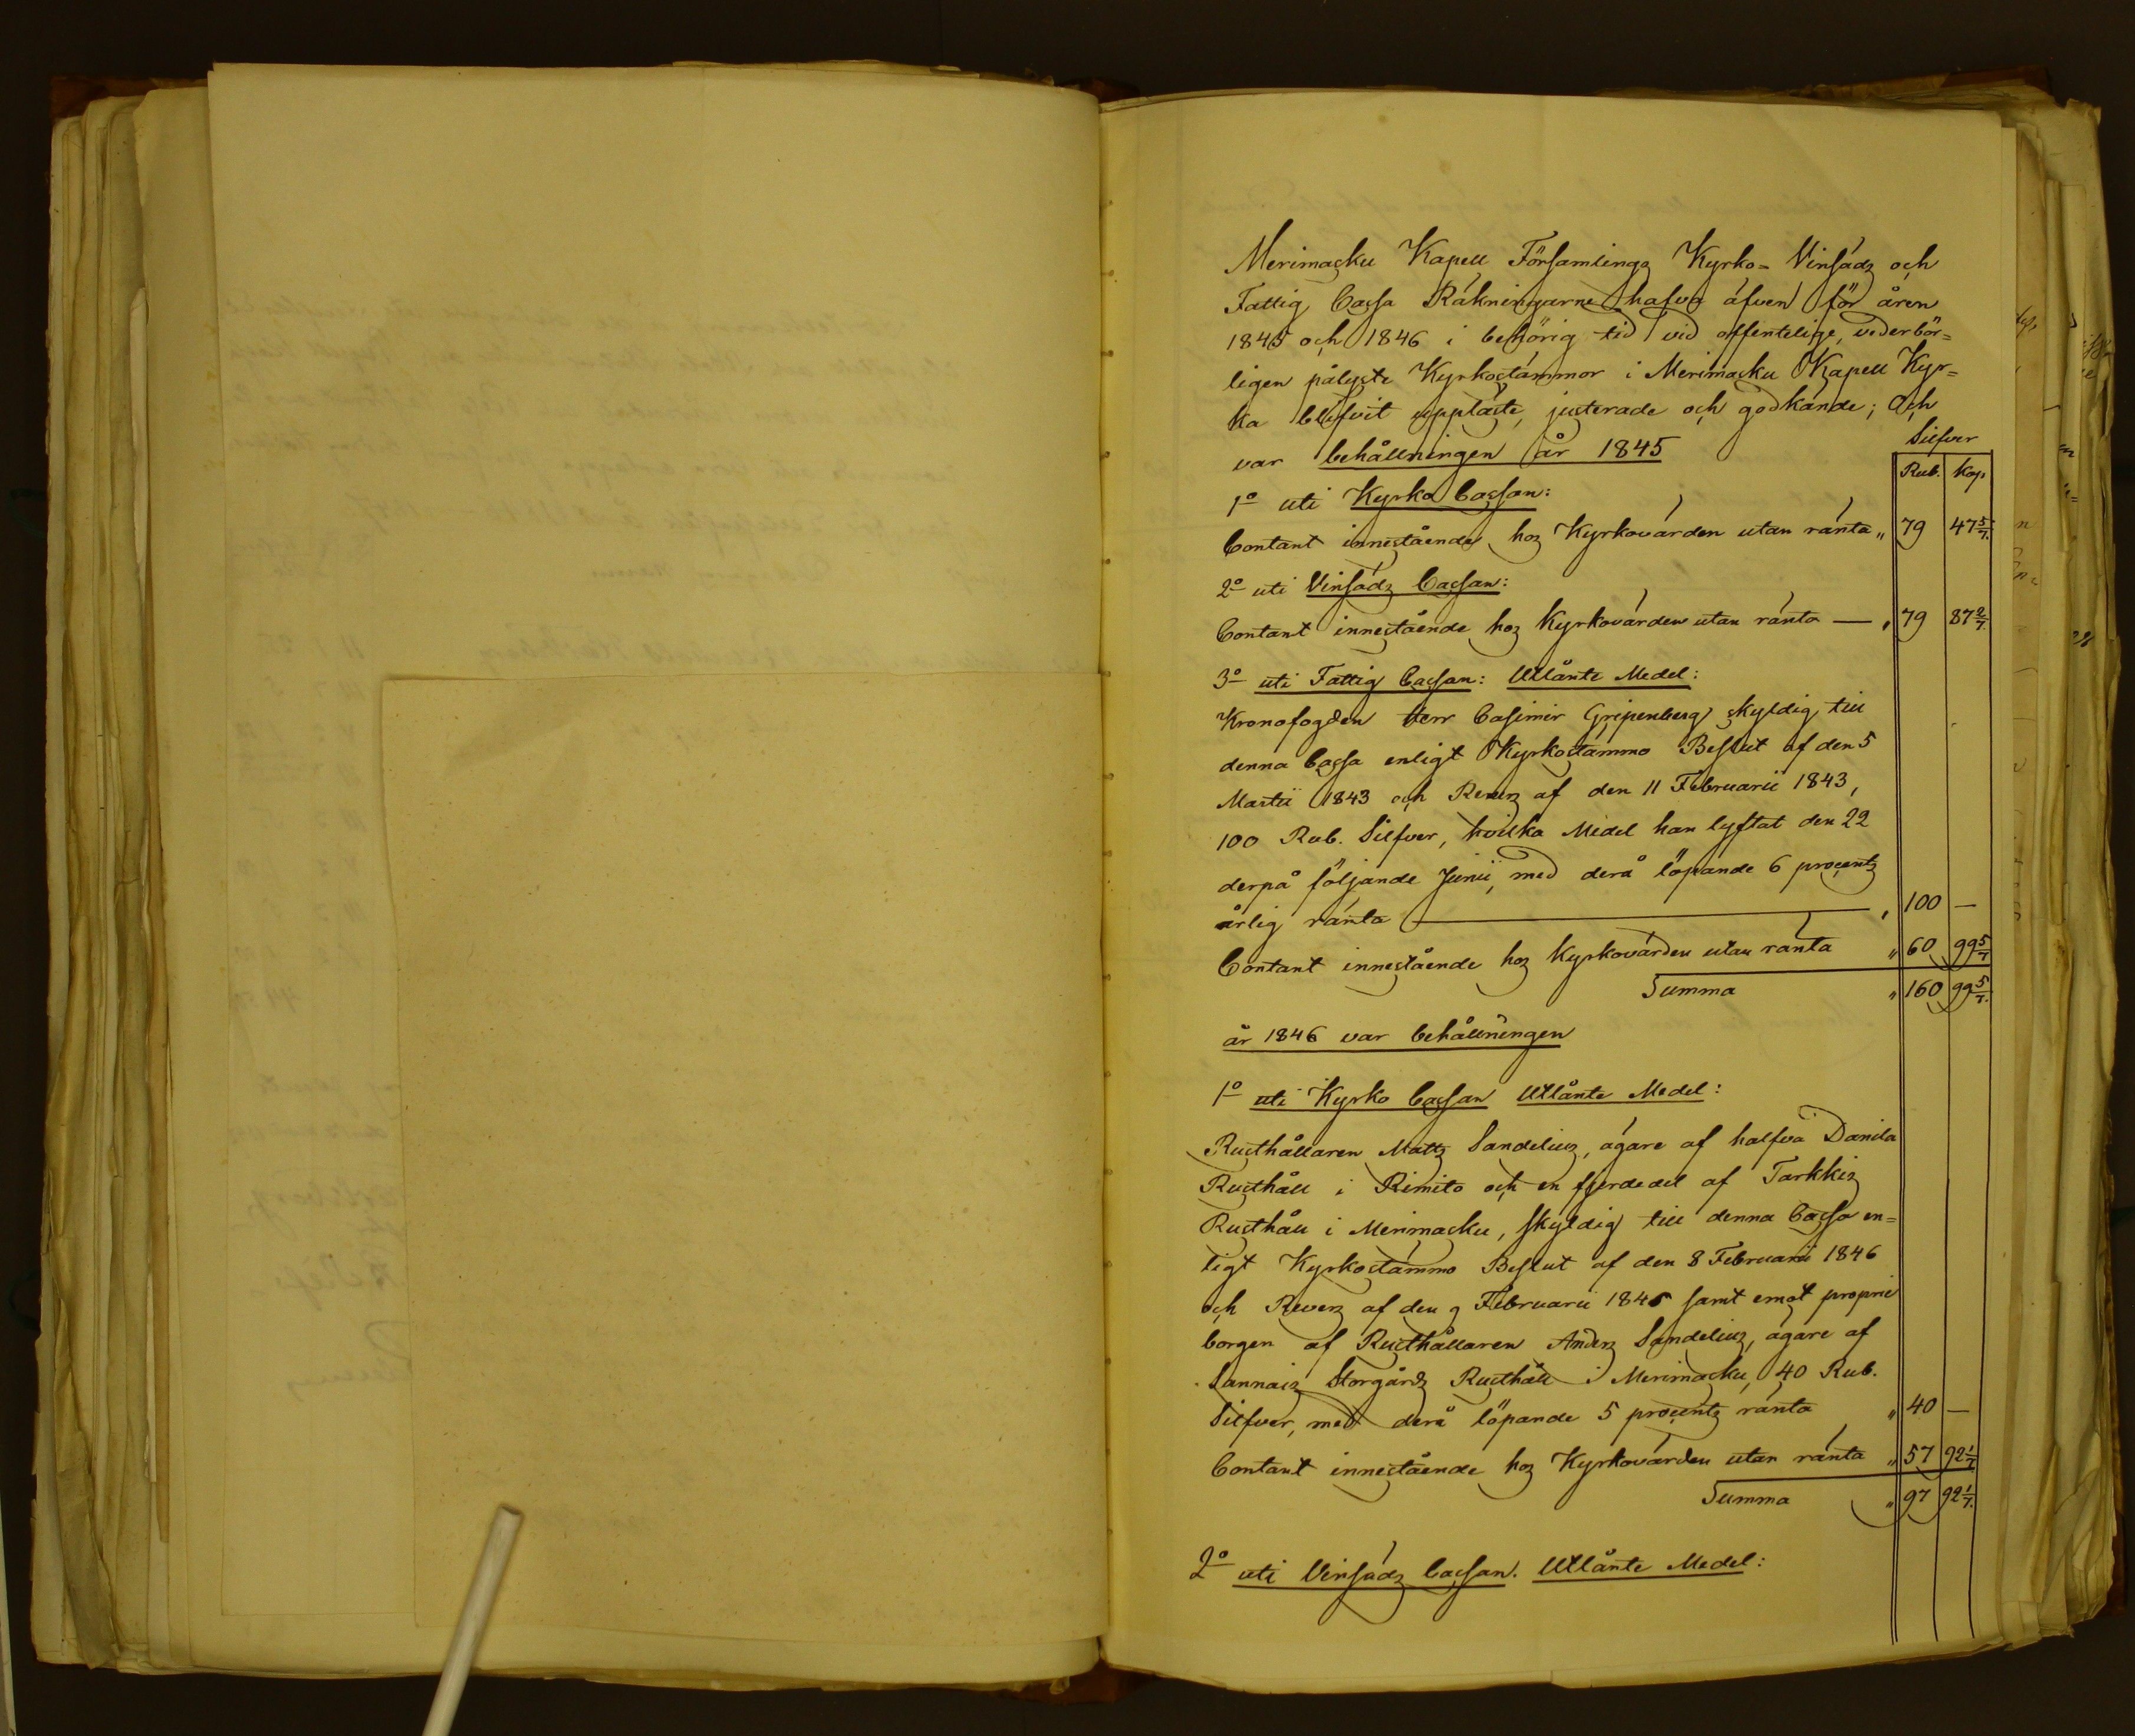 Merimasku Kapell Församlings Kyrko- Vinsäds och
Fattig Cassa Räkningarne hafva äfven för åren
1845 och 1846 i behörig tid vid offentelige, vederbör=
ligen pålyste Kyrkostämmor i Merimasku Kapell Kyr=
ka blifvit uppläste, justerade och godkände; Och
var behållningen år 1845
Silfver
Rub. Kop
1o uti Kyrko Cassan:
Contant innestående hos Kyrkovärden utan ränta „ 79 47 5/7.
2o uti Vinsäds Cassan:
Contant innestående hos Kyrkovärden utan ränta — „ 79 87 2/7.
3o uti Fattig Cassan: Utlånte Medel:
Kronofogden Herr Casimir Gripenberg skyldig till
denna Cassa enligt Kyrkostämmo Beslut af den 5
Martii 1843 och Revers af den 11 Februarii 1843,
100 Rub. Silfver, hvilka Medel han lyftat den 22
derpå följande Junii, med derå löpande 6 procents
årlig ränta — „ 100 —
Contant innestående hos Kyrkovärden utan ränta „ 60 99 5/7
Summa „ 160 99 5/7.
år 1846 var behållningen
1o uti Kyrko Cassan Utlånte Medel:
Rusthållaren Matts Sandelius, ägare af halfva Danila
Rusthåll i Rimito och en fjerdedel af Tarkkis
Rusthåll i Merimasku, skyldig till denna Cassa en=
ligt Kyrkostämmo Beslut af den 8 Februarii 1846
och Revers af den 9 Februarii 1845 samt emot proprie
borgen af Rusthållaren Anders Sandelius, ägare af
Sannais Storgårds Rusthåll i Merimasku, 40 Rub.
Silfver, med derå löpande 5 procents ränta „ 40 —
Contant innestående hos Kyrkovärden utan ränta „ 57 92 1/7
Summa „ 97 92 1/7.
2o uti Vinsäds Cassan. Utlånte Medel: